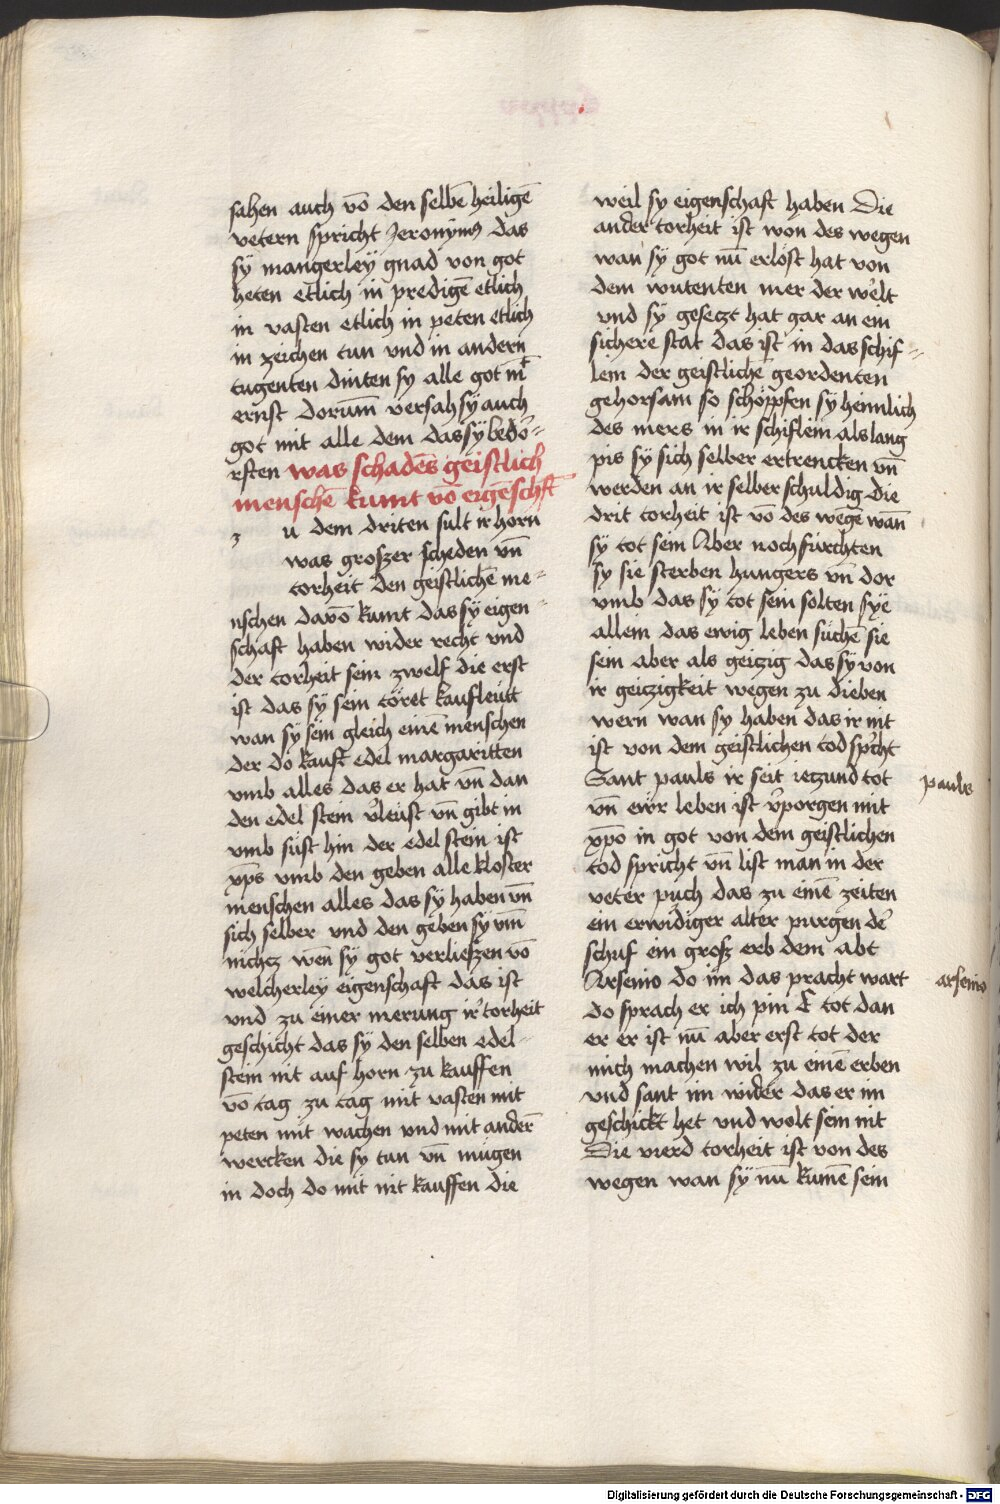 sahen auch vō den selbē heiligē
vetern spricht Jeronimꝰ das
sy mangerleÿ gnad von got
heten etlich in predigē etlich
in vasten etlich in peten etlich
in zeichen tun vnd in andern
tugenten dinten sy alle got mͭ
ernst dorum̄ versah sy auch
got mit alle dem das sÿ bedoͤ-
rften was schadēs geistlich
menschē kumt vō eigēschft
z u dem driten sult ir horn
was groszer scheden vn̄
torheit den geistlichē me-
nschen davō kumt das sÿ eigen-
schaft haben wider recht vnd
der torheit sein zwelf die erst
ist das sy sein toͤret kaufleutt
wan sÿ sein gleich einē menschen
der do kauft edel margaritten
vmb alles das er hat vn̄ dan
den edel stein v̓leust vn̄ gibt in
vmb süst hin der edel stein ist
xp̄s vmb den geben alle kloster
menschen alles das sy haben vn̄
sich selber vnd den geben sy vm̄
nichcz wēn sÿ got verlieszen vō
welcherleÿ eigenschaft das ist
vnd zu einer merung ir̓ torheit
geschicht das sÿ den selben edel-
stein nit auf horn zu kauffen
vō tag zu tag mit vasten mit
peten mit wachen vnd mit anderē
wercken die sy tun vn̄ mügen
in doch do mit nit kauffen die
weil sy eigenschaft haben Die
ander torheit ist von des wegen
wan sÿ got nū erlöst hat von
dem wutenten mer der welt
vnd sÿ gesetzt hat gar an ein
sichere stat das ist in das schif-
lein der geistlichē geordenten
gehorsam so schöppfen sÿ heimlich
des mers in ir schiflein als lang
pis sÿ sich selber ertrencken vn̄
werden an ir selber schuldig die
drit torheit ist vō des wegē wān
sÿ tot sein Aber noch fürchten
sy sie sterben hungers vn̄ dor
vmb das sÿ tot sein solten sÿe
allein das ewig leben süchē sie
sein aber als geizig das sÿ von
ir geizigkeit wegen zu dieben
wern wan sy haben das ir nit
ist von dem geistlichen tod sp̓cht
Sant pauls ir seit ietzund tot
vn̄ ewr leben ist v̓porgen mit
xp̄o in got von dem geistlichen
tod spricht vn̄ list man in der
veter puch das zu einē zeiten
ein erwidiger alter purgen de̓
schuf ein grosz erb dem abt
Arsenio do im das pracht wart
do sprach er ich pin E tot dan
er er ist nū aber erst tot der
mich machen wil zu einē erben
vnd sant im wider das er im
geschickt het vnd wolt sein nit
Die vierd torheit ist von des
wegen wan sÿ nū kumē sein
pauls
arsenio
Digitalisierung gefördert durch die Deutsche Forschungsgemeinschaft - DFG